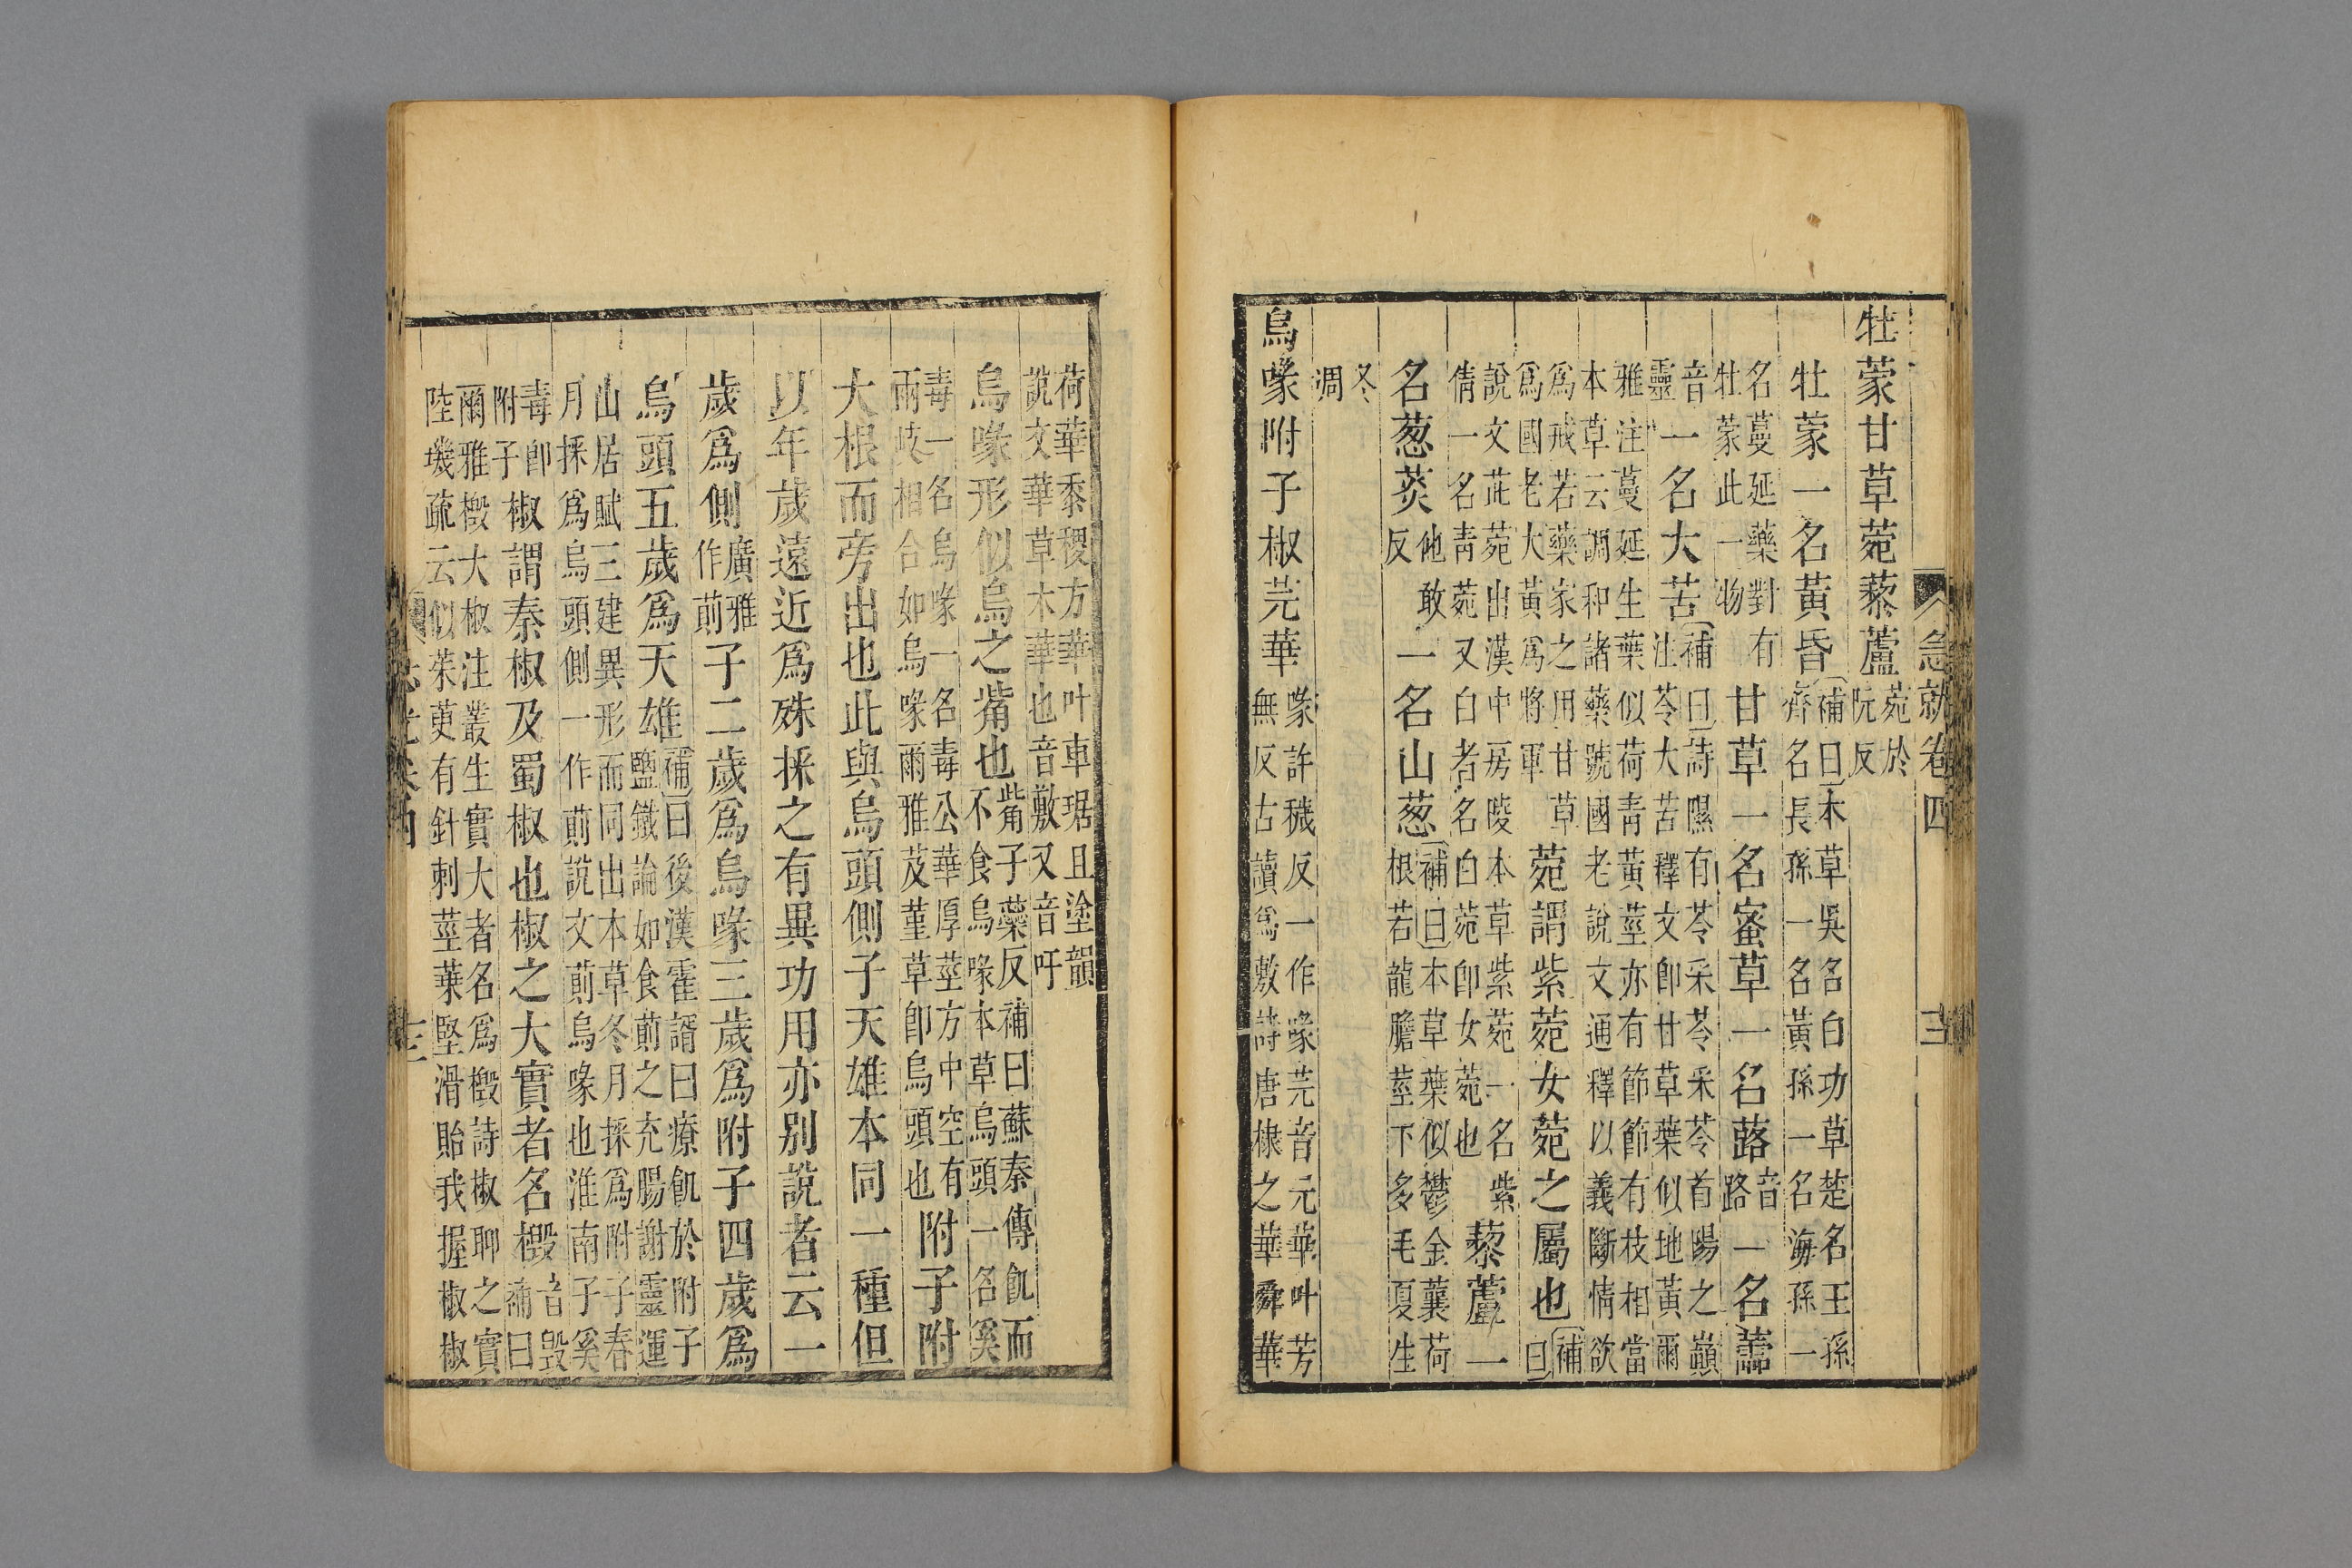 急就卷四
三
牡蒙甘草菀藜蘆菀於阮反
牡蒙一名黃昏補曰本草吳名白功草楚名王孫齊名長孫一名黃孫一名海孫一
名蔓延藥對有牡蒙此一物甘草一名蜜草一名蕗音路一名蘦
音靈一名大苦補曰詩隰有苓采苓采苓首陽之巔注苓大苦釋文卽甘草葉似地黃爾
雅注蔓延生葉似荷靑黃莖亦有節節有枝相當本草云調和諸藥號國老說文通釋以義斷情欲
爲戒若藥家之用甘草爲國老大黃爲將軍菀謂紫菀女菀之屬也補曰
說文茈菀出漢中房陵本草紫菀一名紫倩一名靑菀又白者名白菀卽女菀也藜蘆一
名葱苂他敢反一名山葱補曰本草葉似鬱金蘘荷根若龍膽莖下多毛夏生
冬凋
烏喙附子椒芫華喙許穢反一作喙芫音元華叶芳無反古讀爲敷詩唐棣之華舜華
荷華黍稷方華叶車琚且塗韻說文華草木華也音敷又音吁
烏喙形似烏之觜也觜子藥反補曰蘇秦傳飢而不食烏喙本草烏頭一名奚
毒一名烏喙一名毒公華厚莖方中空有兩歧相合如烏喙爾雅芨堇草卽烏頭也附子附
大根而旁出也此與烏頭側子天雄本同一種但
以年歲遠近爲殊採之有異功用亦別說者云一
歲爲側廣雅作萴子二歲爲烏喙三歲爲附子四歲爲
烏頭五歲爲天雄補曰後漢霍諝曰療飢於附子鹽鐵論如食萴之充腸謝靈運
山居賦三建異形而同出本草冬月採爲附子春月採爲烏頭側一作萴說文萴烏喙也淮南子奚
毒卽附子椒謂秦椒及蜀椒也椒之大實者名檓音毀補曰
爾雅檓大椒注叢生實大者名爲檓詩椒聊之實陸璣疏云似茱萸有針刺莖葉堅滑貽我握椒椒
三